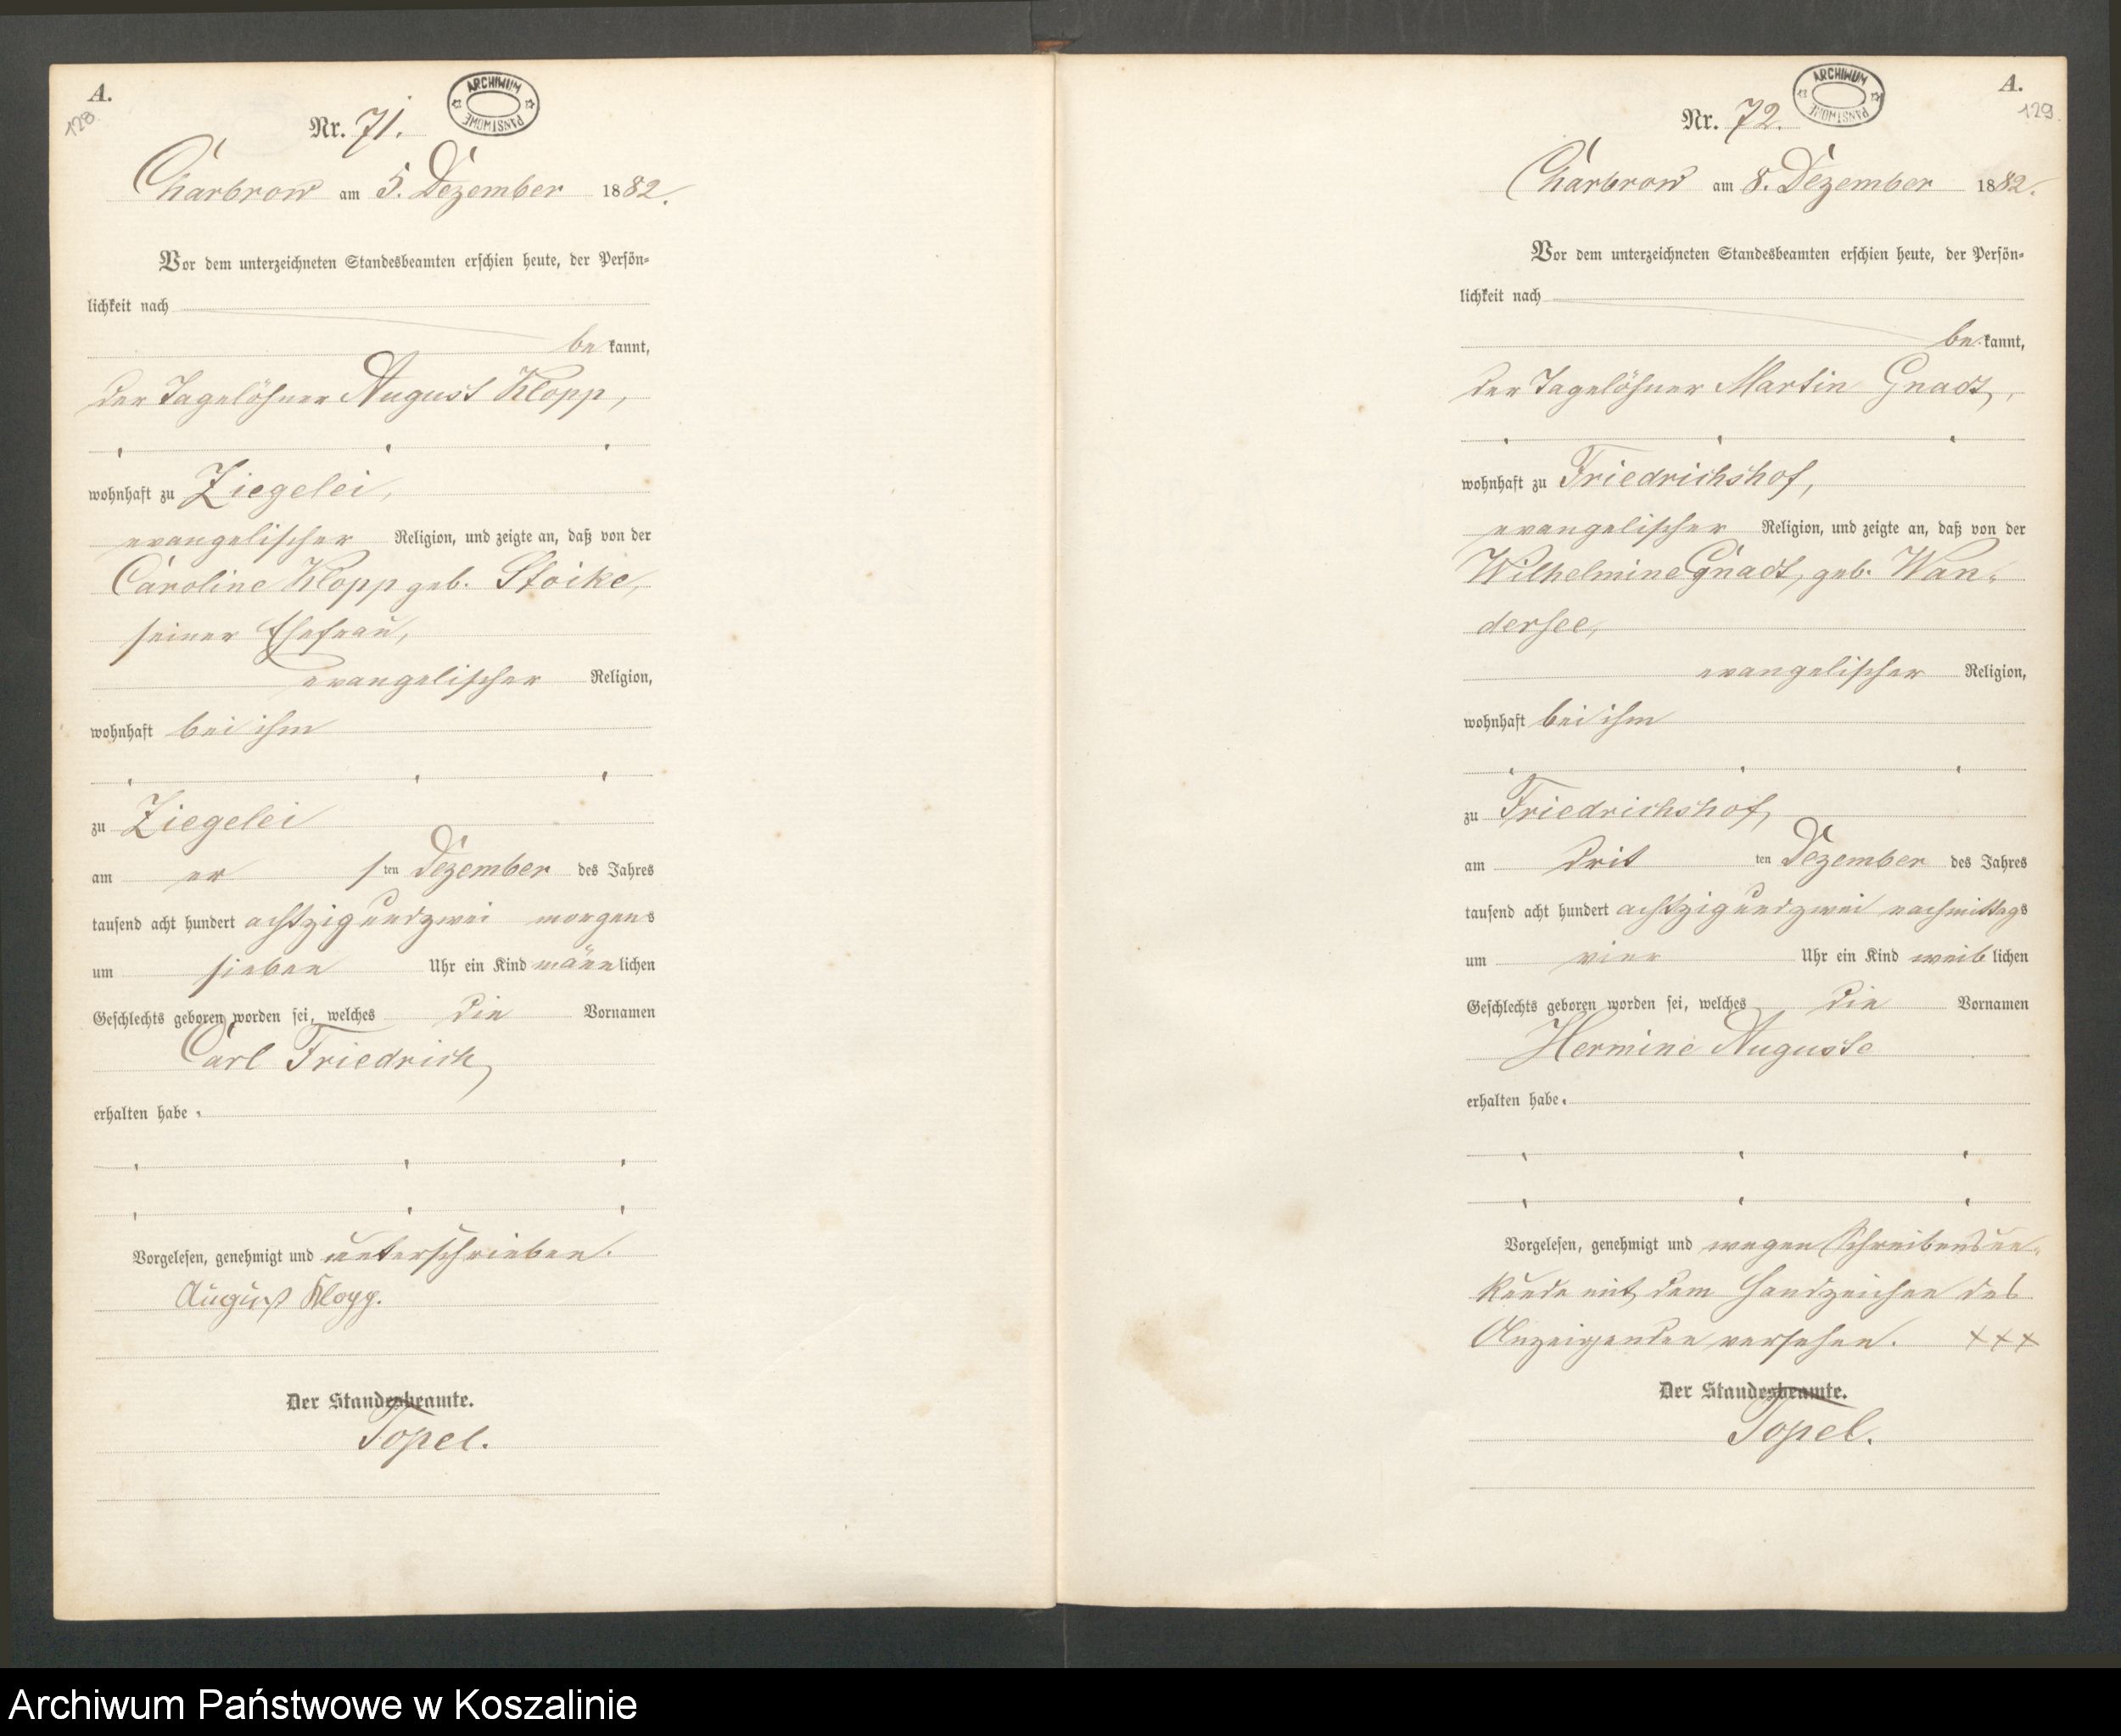 A.
128.
ARCHIWUM
PAŃSTWOWE
Nr. 71.
Charbrow am 5. Dezember 1882.
Vor dem unterzeichneten Standesbeamten erschien heute, der Persön-
lichkeit nach
be kannt,
der Tagelöhner August Klopp,
wohnhaft zu Ziegelei,
evangelischer Religion, und zeigte an, daß von der
Caroline Klopp geb. Stoike,
seiner Ehefrau,
evangelischer Religion,
wohnhaft bei ihm
zu Ziegelei
am er sten Dezember des Jahres
tausend acht hundert achtzig und zwei morgens
um sieben Uhr ein Kind männlichen
Geschlechts geboren worden sei, welches die Vornamen
Carl Friedrich,
erhalten habe.
Vorgelesen, genehmigt und unterschrieben.
August Klopp.
Der Standesbeamte.
Topel.
A.
129.
ARCHIWUM
PAŃSTWOWE
Nr. 72.
Charbrow am 8. Dezember 1882.
Vor dem unterzeichneten Standesbeamten erschien heute, der Persön-
lichkeit nach
be kannt,
der Tagelöhner Martin Gnadt,
wohnhaft zu Friedrichshof,
evangelischer Religion, und zeigte an, daß von der
Wilhelmine Gnadt, geb. Wan-
dersee,
evangelischer Religion,
wohnhaft bei ihm
zu Friedrichshof,
am drit ten Dezember des Jahres
tausend acht hundert achtzig und zwei nachmittags
um vier Uhr ein Kind weiblichen
Geschlechts geboren worden sei, welches die Vornamen
Hermine Auguste
erhalten habe.
Vorgelesen, genehmigt und wegen Schreibensun-
kunde mit dem Handzeichen des
Anzeigenden versehen. +++
Der Standesbeamte.
Topel.
Archiwum Państwowe w Koszalinie